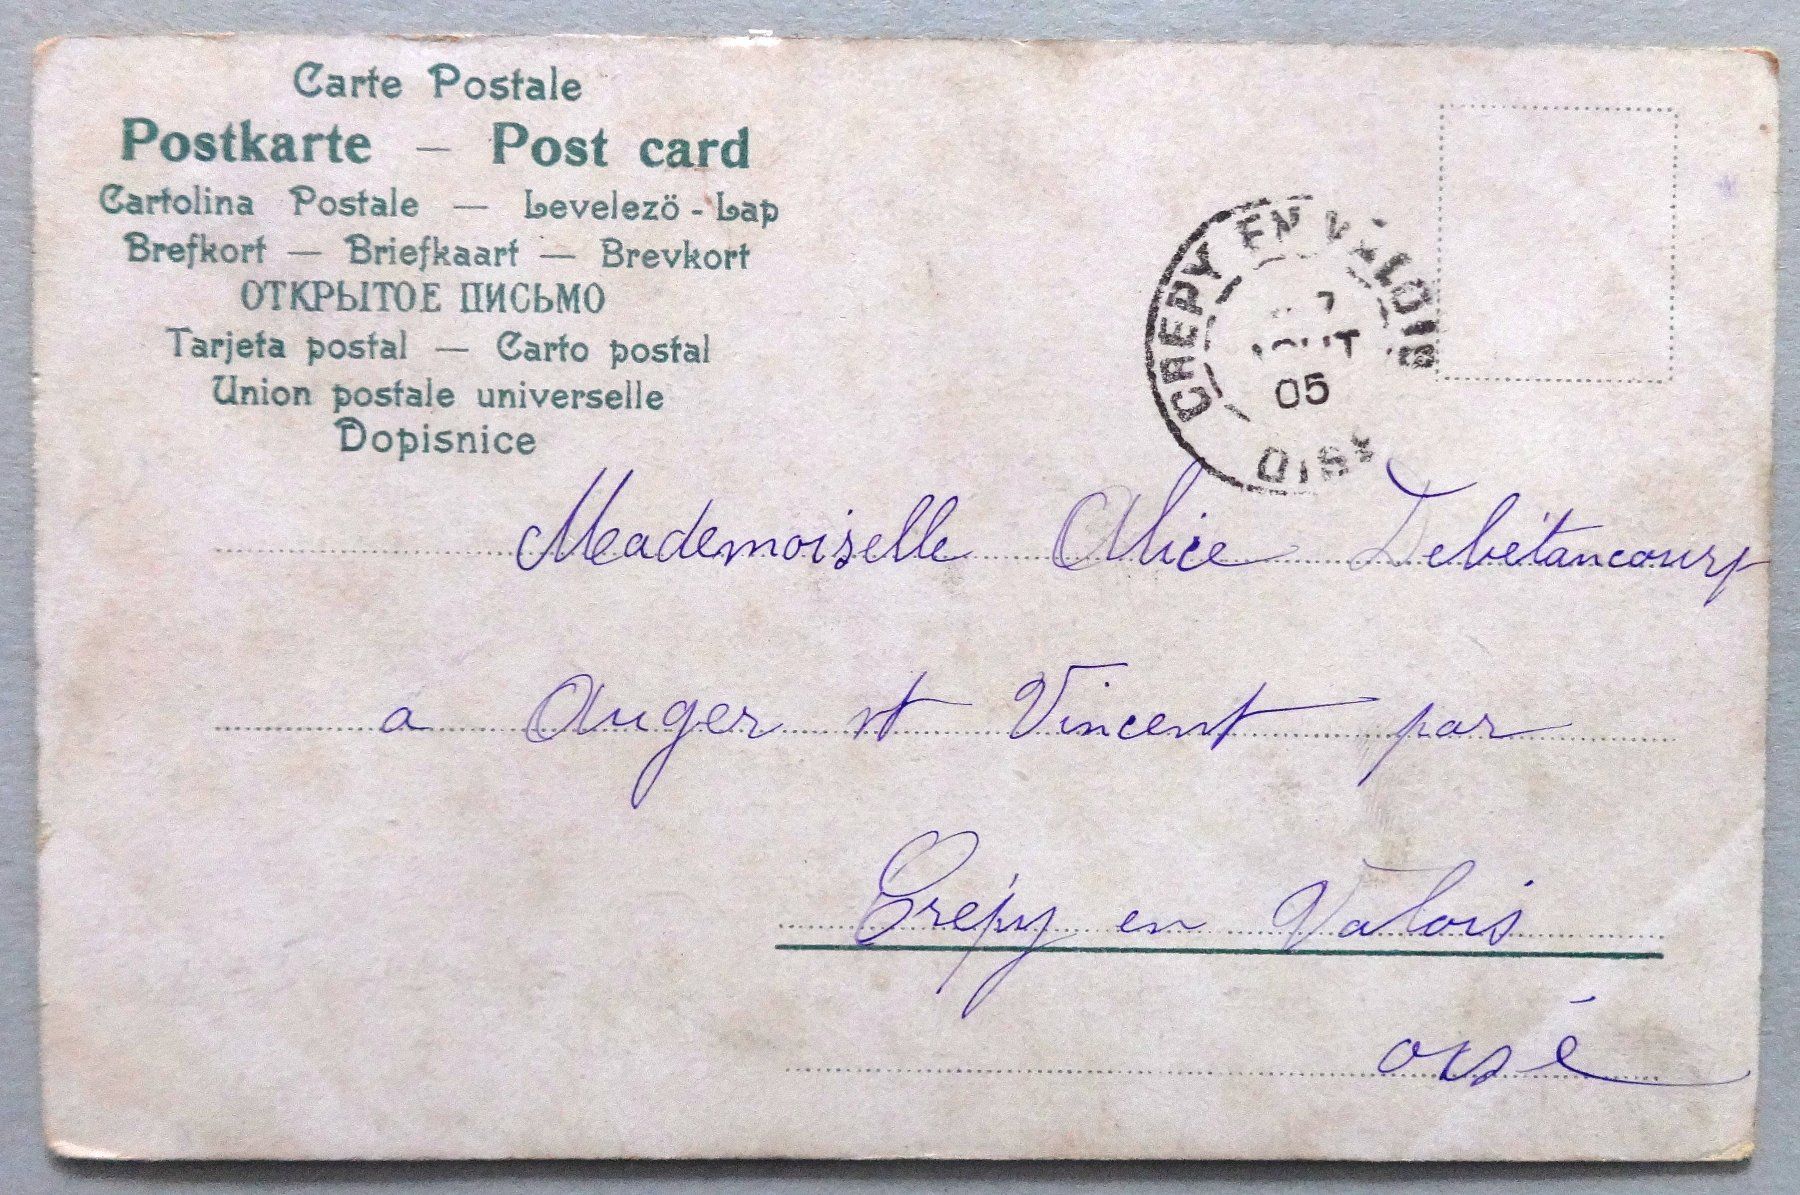 Carte Postale
Postkarte — Post card
Cartolina Postale — Levelezö-Lap
Brefkort — Briefkaart — Brevkort
ОТКРЫТОЕ ПИСЬМО
Tarjeta postal — Carto postal
Union postale universelle
Dopisnice
CREPY EN VALOIS
7
AOUT
05
OISE
Mademoiselle Alice Debétancourt
a Auger st Vincent par
Crépy en Valois
oisé